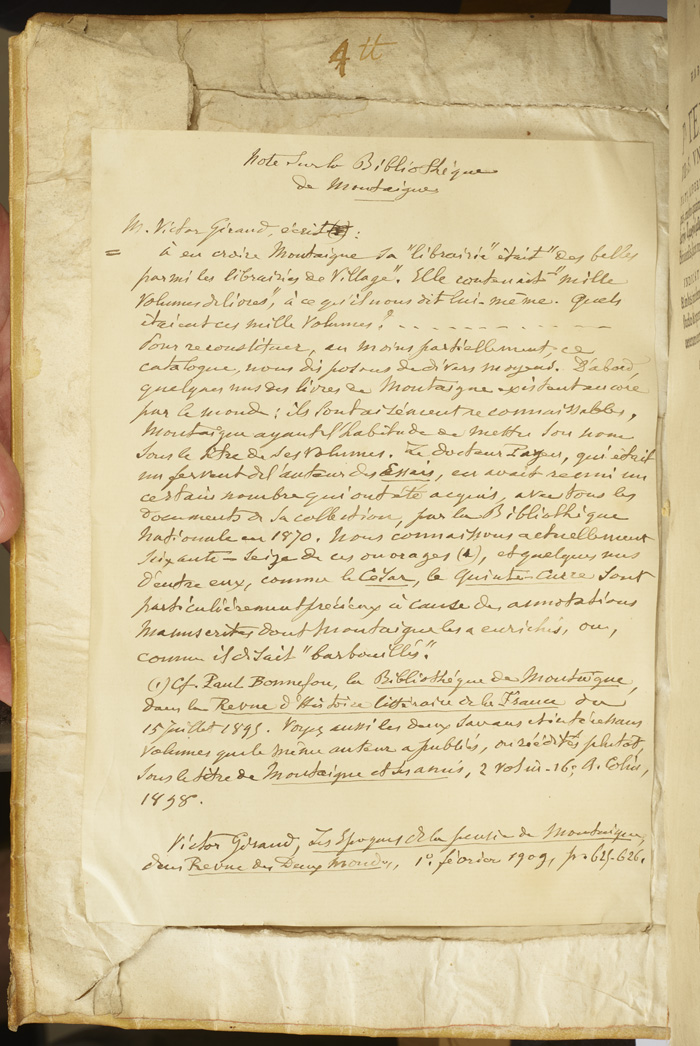 4 tt
Note sur la Bibliothèque
de Montaigne
M. Victor Giraud, écrit :
= à en croire Montaigne sa "librairie" était "des belles
parmi les librairies de village". Elle contenait "mille
volumes de livres", à ce qu'il nous dit lui-même. Quels
étaient ces mille volumes ? . - - - - - - - - -
Pour reconstituer, au moins partiellement, ce
catalogue, nous disposons de divers moyens. D'abord,
quelques uns des livres de Montaigne existent encore
par le monde : ils sont aisément reconnaissables,
Montaigne ayant l'habitude de mettre son nom
sous le titre de ses volumes. Le docteur Payen, qui était
un fervent de l'auteur des Essais, en avait réuni un
certain nombre qui ont été acquis, avec tous les
documents de sa collection, par la Bibliothèque
Nationale en 1870. Nous connaissons actuellement
soixante-seize de ces ouvrages (1), et quelques uns
d'entre eux, comme le César, le Quinte-Curce sont
particulièrement précieux à cause des annotations
manuscrites dont Montaigne les a enrichis, ou,
comme il disait "barbouillés".
(1) Cf. Paul Bonnefon, la Bibliothèque de Montaigne,
dans la Revue d'Histoire littéraire de la France du
15 juillet 1895. Voyez aussi les deux savans et intéressans
volumes que le même auteur a publiés, ou réédités plutôt,
sous le titre de Montaigne et ses amis, 2 vol in-16, A. Colin,
1898.
Victor Giraud, Les Epoques de la pensée de Montaigne,
dans Revue des Deux Mondes, 1º février 1909, p. 625-626.